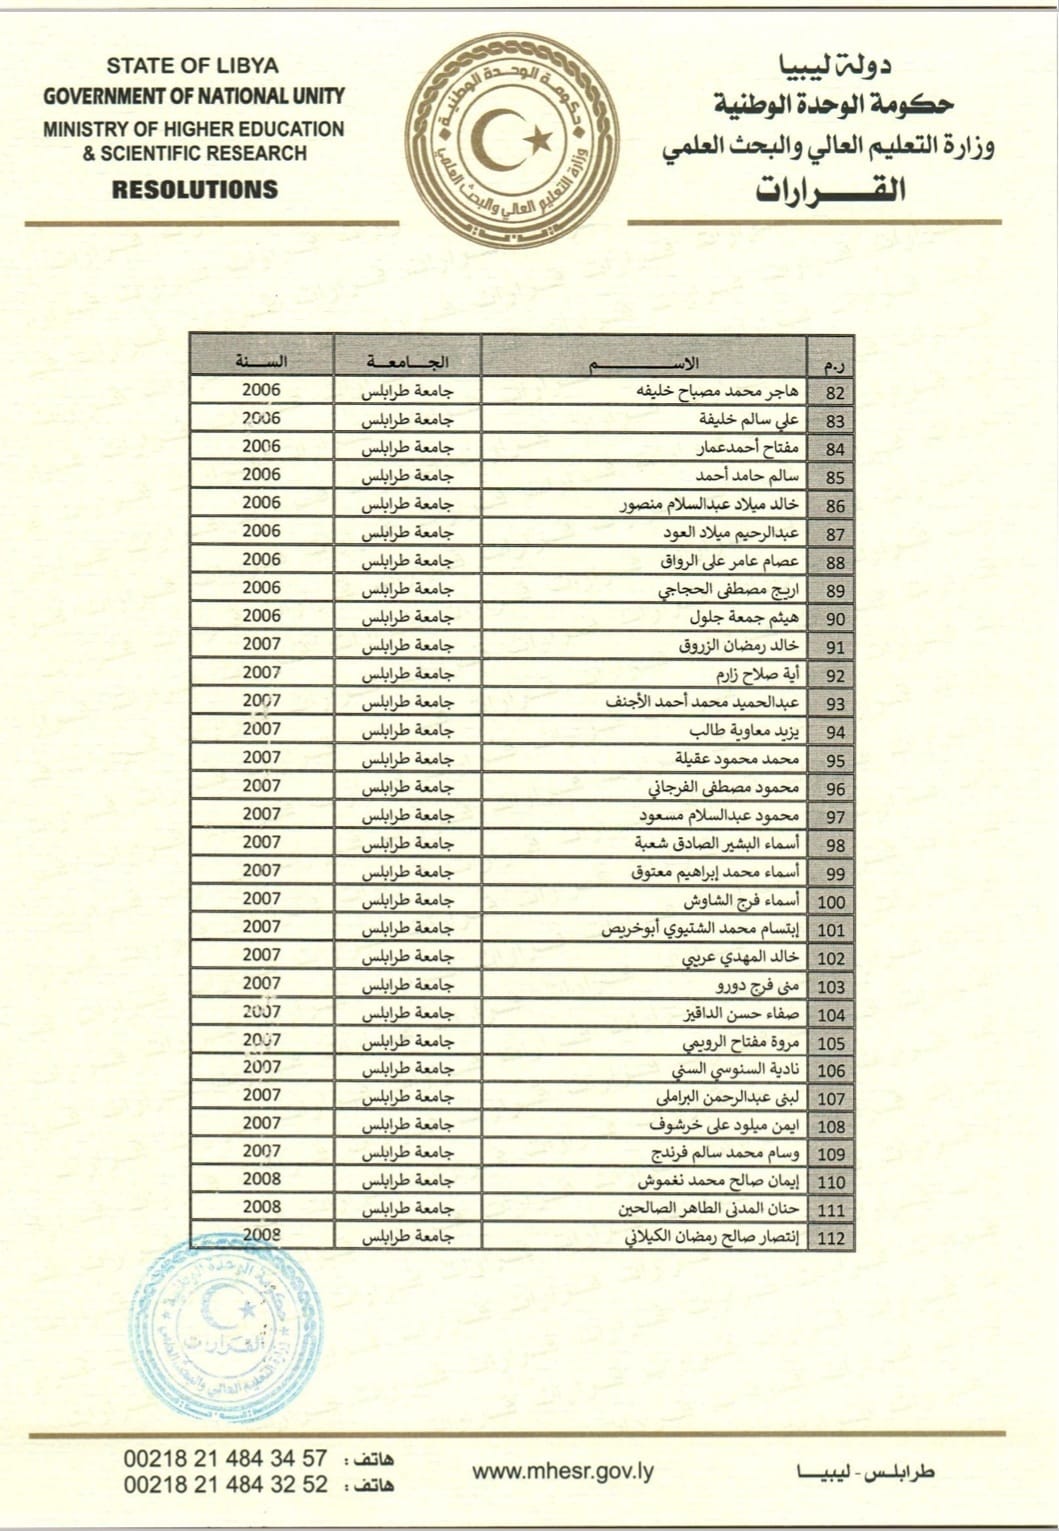 STATE OF LIBYA
GOVERNMENT OF NATIONAL UNITY
MINISTRY OF HIGHER EDUCATION
& SCIENTIFIC RESEARCH
RESOLUTIONS
حكومة الوحدة الوطنية
وزارة التعليم العالي والبحث العلمي
دولة ليبيا
حكومة الوحدة الوطنية
وزارة التعليم العالي والبحث العلمي
القـــرارات
ر.م الاســــــــــم الجـــامعـــة الســـنة
82 هاجر محمد مصباح خليفه جامعة طرابلس 2006
83 علي سالم خليفة جامعة طرابلس 2006
84 مفتاح أحمدعمار جامعة طرابلس 2006
85 سالم حامد أحمد جامعة طرابلس 2006
86 خالد ميلاد عبدالسلام منصور جامعة طرابلس 2006
87 عبدالرحيم ميلاد العود جامعة طرابلس 2006
88 عصام عامر على الرواق جامعة طرابلس 2006
89 اريج مصطفى الحجاجي جامعة طرابلس 2006
90 هيثم جمعة جلول جامعة طرابلس 2006
91 خالد رمضان الزروق جامعة طرابلس 2007
92 أية صلاح زارم جامعة طرابلس 2007
93 عبدالحميد محمد أحمد الأجنف جامعة طرابلس 2007
94 يزيد معاوية طالب جامعة طرابلس 2007
95 محمد محمود عقيلة جامعة طرابلس 2007
96 محمود مصطفى الفرجاني جامعة طرابلس 2007
97 محمود عبدالسلام مسعود جامعة طرابلس 2007
98 أسماء البشير الصادق شعبة جامعة طرابلس 2007
99 أسماء محمد إبراهيم معتوق جامعة طرابلس 2007
100 أسماء فرج الشاوش جامعة طرابلس 2007
101 إبتسام محمد الشتيوي أبوخريص جامعة طرابلس 2007
102 خالد المهدي عريبي جامعة طرابلس 2007
103 منى فرج دورو جامعة طرابلس 2007
104 صفاء حسن الداقيز جامعة طرابلس 2007
105 مروة مفتاح الرويمي جامعة طرابلس 2007
106 نادية السنوسي السني جامعة طرابلس 2007
107 لبنى عبدالرحمن البراملى جامعة طرابلس 2007
108 ايمن ميلود على خرشوف جامعة طرابلس 2007
109 وسام محمد سالم فرندج جامعة طرابلس 2007
110 إيمان صالح محمد نغموش جامعة طرابلس 2008
111 حنان المدنى الطاهر الصالحين جامعة طرابلس 2008
112 إنتصار صالح رمضان الكيلاني جامعة طرابلس 2008
حكومة الوحدة الوطنية
القرارات
وزارة التعليم العالي والبحث العلمي
طرابلس - ليبيا
www.mhesr.gov.ly
هاتف : 00218 21 484 34 57
هاتف : 00218 21 484 32 52